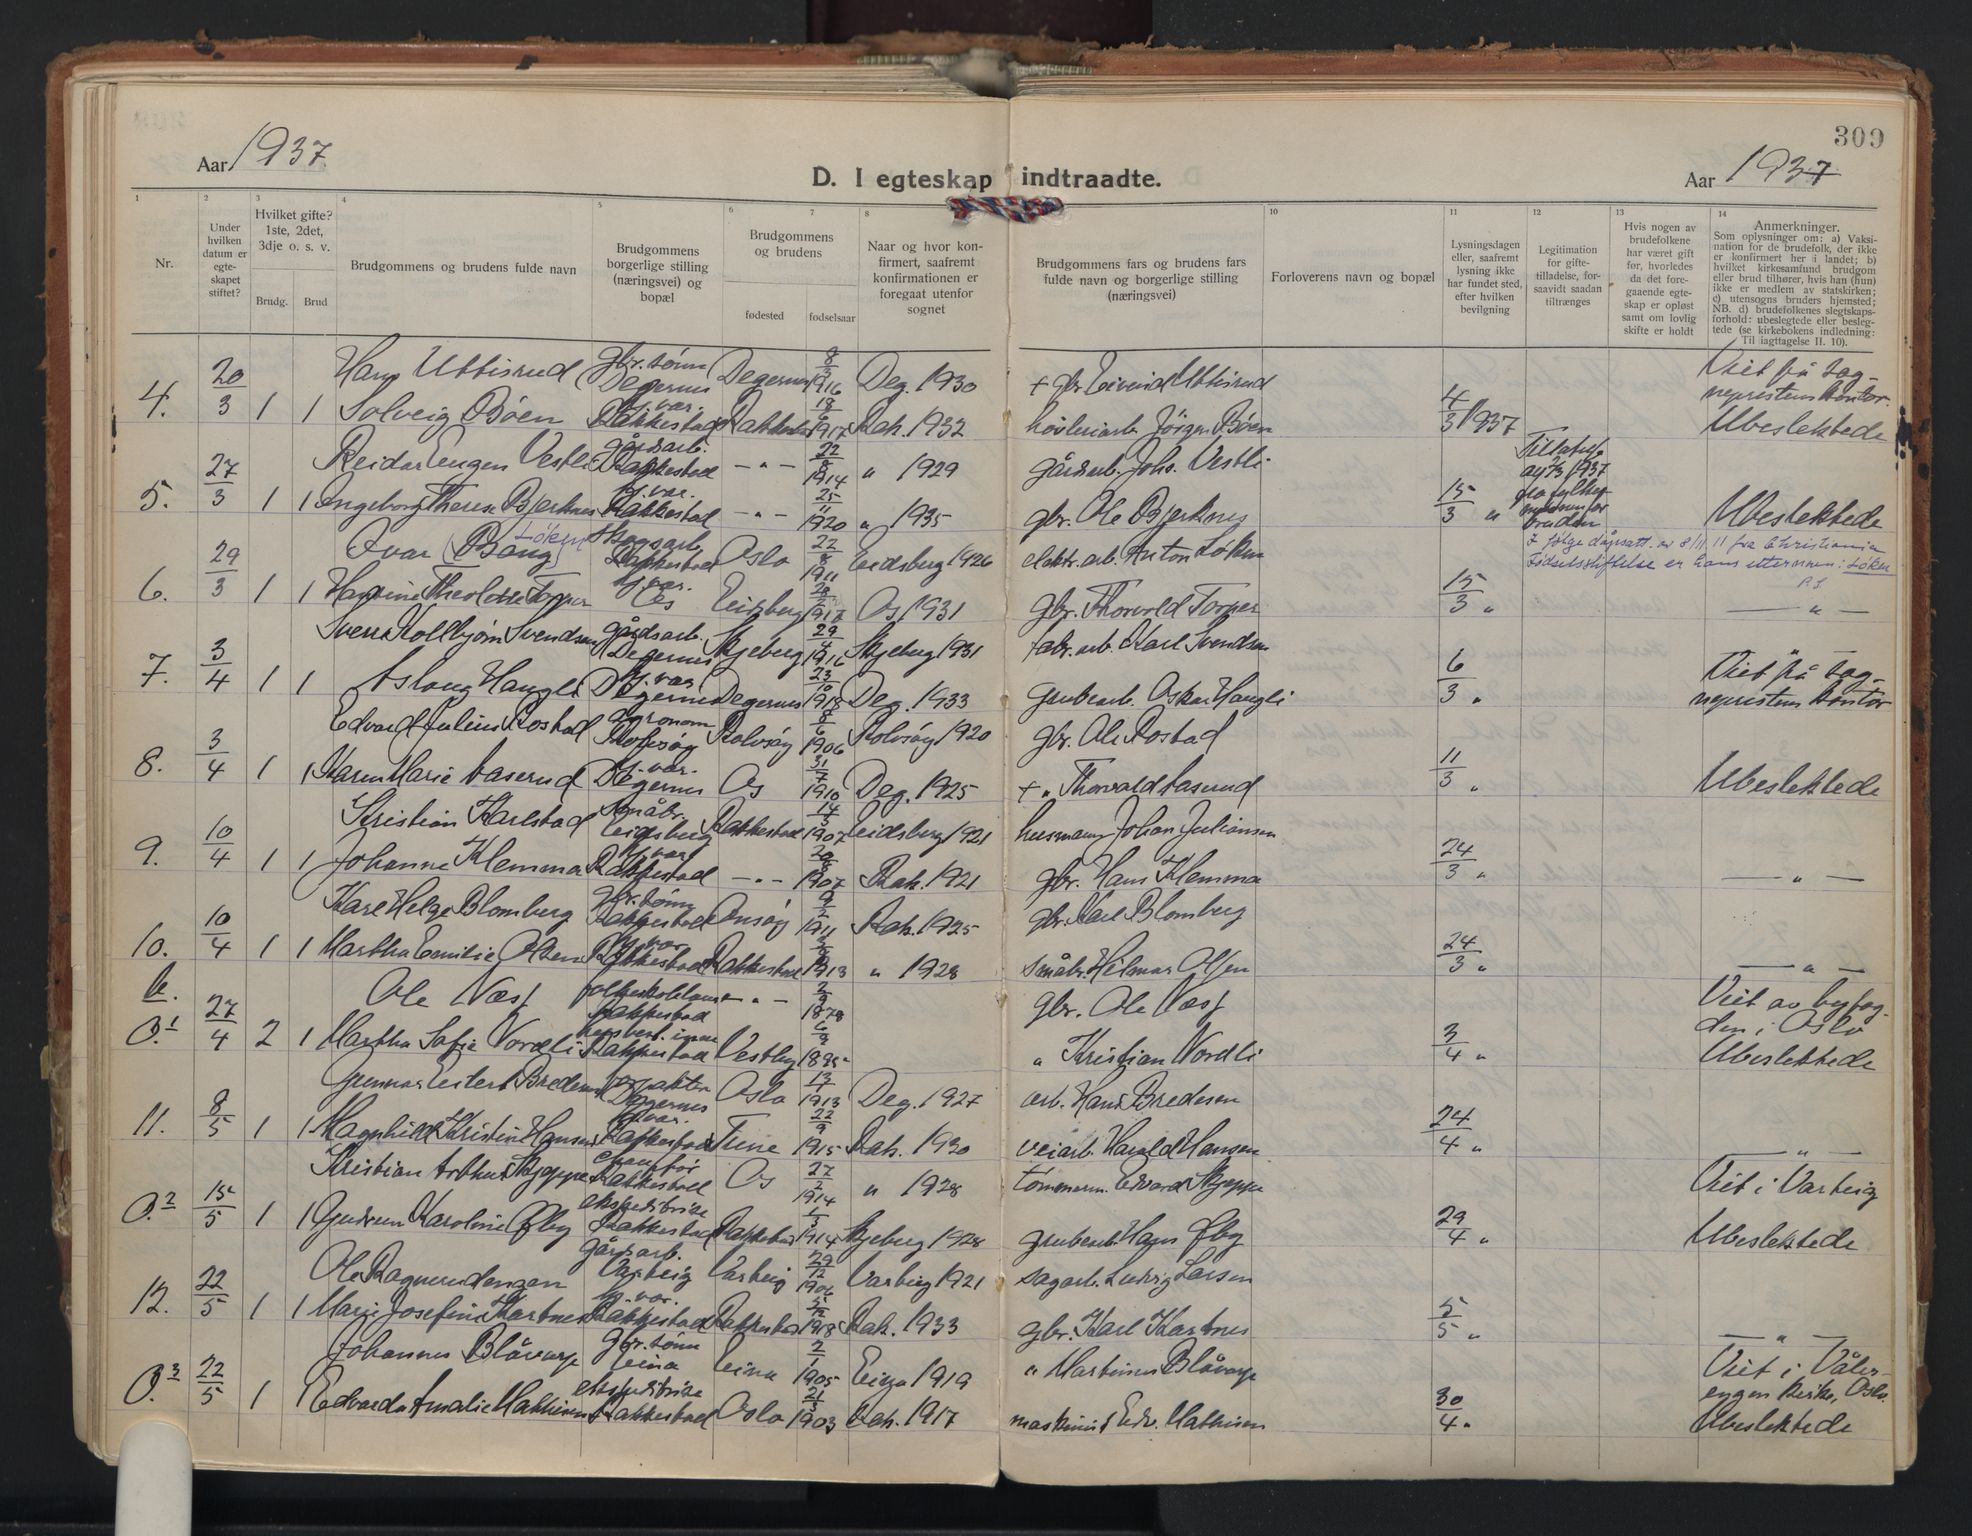 309
Aar 1937
D. I egteskap indtraadte.
Aar 1937
1 2 3 4 5 6 7 8 10 11 12 13 14
Nr.
Under hvilken datum er egte-skapet stiftet?
Hvilket gifte? 1ste, 2det, 3dje o. s. v.
Brudg. Brud
Brudgommens og brudens fulde navn
Brudgommens borgerlige stilling (næringsvei) og bopæl
Brudgommens og brudens
fødested fødselsaar
Naar og hvor kon-firmert, saafremt konfirmationen er foregaat utenfor sognet
Brudgommens fars og brudens fars fulde navn og borgerlige stilling (næringsvei)
Forloverens navn og bopæl
Lysningsdagen eller, saafremt lysning ikke har fundet sted, efter hvilken bevilgning
Legitimation for gifte-tilladelse, for-saavidt saadan tiltrænges
Hvis nogen av brudefolkene har været gift før, hvorledes da det fore-gaaende egte-skap er opløst samt om lovlig skifte er holdt
Anmerkninger.
Som oplysninger om: a) Vaksi-nation for de brudefolk, der ikke er konfirmert her i landet; b) hvilket kirkesamfund brudgom eller brud tilhører, hvis han (hun) ikke er medlem av statskirken; c) utensogns bruders hjemsted; NB. d) brudefolkenes slegtskaps-forhold: ubeslegtede eller besleg-tede (se kirkebokens indledning: Til iagttagelse II. 10).
Hans Ubbisrud gbr. sønn Degernes Degernes 8/3 1916 Deg. 1930 + gbr. Eivind Ubbisrud Viet på sog-
4. 20/3 1 1 Solveig Bøen hj. var. Rakkestad Rakkestad 18/6 1917 Rak. 1932 høvleriarb. Jörgen Bøen 4/3 1937 neprestens kontor. Ubeslektede
Reidar Engen Vestli gårdsarb. Rakkestad — " — 22/8 1914 " 1929 gårdsarb. Johs. Vestli
5. 27/3 1 1 Ingeborg Therese Bjerknes hj. var. Rakkestad — " — 25/11 1920 " 1935 gbr. Ole Bjerknes 15/3 " Ubeslektede
Ivar (Bang) Løken skogsarb. Rakkestad Oslo 22/8 1911 Eidsberg 1926 elektr. arb. Anton Løken I følge dåpsatt. av 8/11 11 fra Christiania Fødselsstiftelse er hans etternavn: Løken
6. 29/3 1 1 Theoline Torper hj. var. Os Eidsberg 1917 Os 1931 gbr. Thorvold Torper 15/3 " — " —
Sverre Kolbjørn Svendsen gårdsarb. Degernes Skjeberg 29/4 1916 Skjeberg 1931 fabr. arb. Karl Svendsen
7. 3/4 1 1 Aslaug Haugli hj. var. Degernes Degernes 23/10 1918 Deg. 1933 grubearb. Oskar Haugli 6/3 " Viet på sog-neprestens kontor
Edvard Julius Rostad agronom Rolvsøy Rolvsøy 8/6 1906 Rolvsøy 1920 gbr. Ole Rostad
8. 3/4 1 1 Karen Marie Aaserud hj. var. Degernes Os 31/7 1910 Deg. 1925 + " Thorvald Aaserud 11/3 " Ubeslektede
Kristian Karlstad småbr. Eidsberg Rakkestad 14/3 1907 Eidsberg 1921 husmann Johan Juliansen
9. 10/4 1 1 Johanne Klemma hj. var. Rakkestad — " — 1907 Rak. 1921 gbr. Hans Klemma 24/3 " — " —
Kåre Helge Blomberg gbr. sønn Rakkestad Onsøy 9/2 1911 Rak. 1925 gbr. Karl Blomberg
10. 10/4 1 1 Martha Emilie Olsen hj. var. Rakkestad Rakkestad 1913 " 1928 småbr. Hilmar Olsen 24/3 " — " —
Ole Næss folkeskolelærer Rakkestad — " — 2/9 1878 gbr. Ole Næss Viet av byfog-
O.1 27/4 2 1 Martha Sofie Nordli husbest.inne Rakkestad Vestby 1895 " Kristian Nordli 3/4 " den i Oslo Ubeslektede
Gunnar Bredesen Degernes Oslo 1913 Deg. 1927 arb. Hans Bredesen
11. 8/5 1 1 Magnhild Kristine Hansen hj. var. Rakkestad Tune 22/9 1915 Rak. 1930 veiarb. Harald Hansen 24/4 " — " —
Kristian Arthur Skjeppe chauffør Rakkestad Os 27/2 1914 " 1928 tømmerm. Edvard Skjeppe Viet i Varteig
O.2 15/5 1 1 Gudrun Karoline Øby ekspeditrise Rakkestad Rakkestad 1/3 1914 Skjeberg 1928 grubearb. Hans Øby 29/4 " Ubeslektede
Ole gårdsarb. Varteig Varteig 29/12 1906 Varteig 1921 sagarb. Ludvig Larsen
12. 22/5 1 1 Marie Josefine Kartnes hj. var. Rakkestad Rakkestad 5/12 1918 Rak. 1933 gbr. Karl Kartnes 5/5 " — " —
Johannes Blåvarp gbr. sønn Eina Eina 2/1 1905 Eina 1919 " Martinus Blåvarp Viet i Våler-
O.3 22/5 1 1 Edvarda Amalie Mathisen ekspeditrise Rakkestad Oslo 21/3 1903 Rak. 1917 maskinist Edv. Mathisen 30/4 " engen kirke, Oslo. Ubeslektede